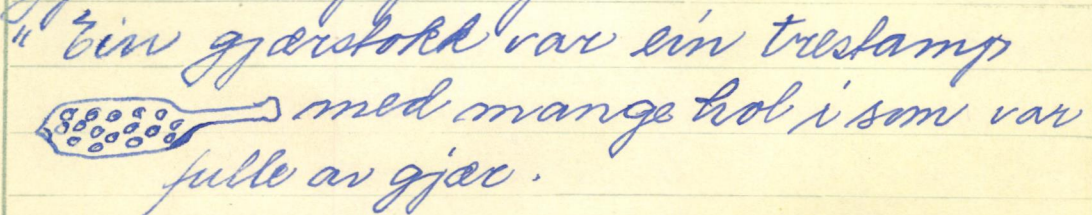 "Ein gjærstokk var ein trestamp
med mange hol i som var
fulle av gjær.